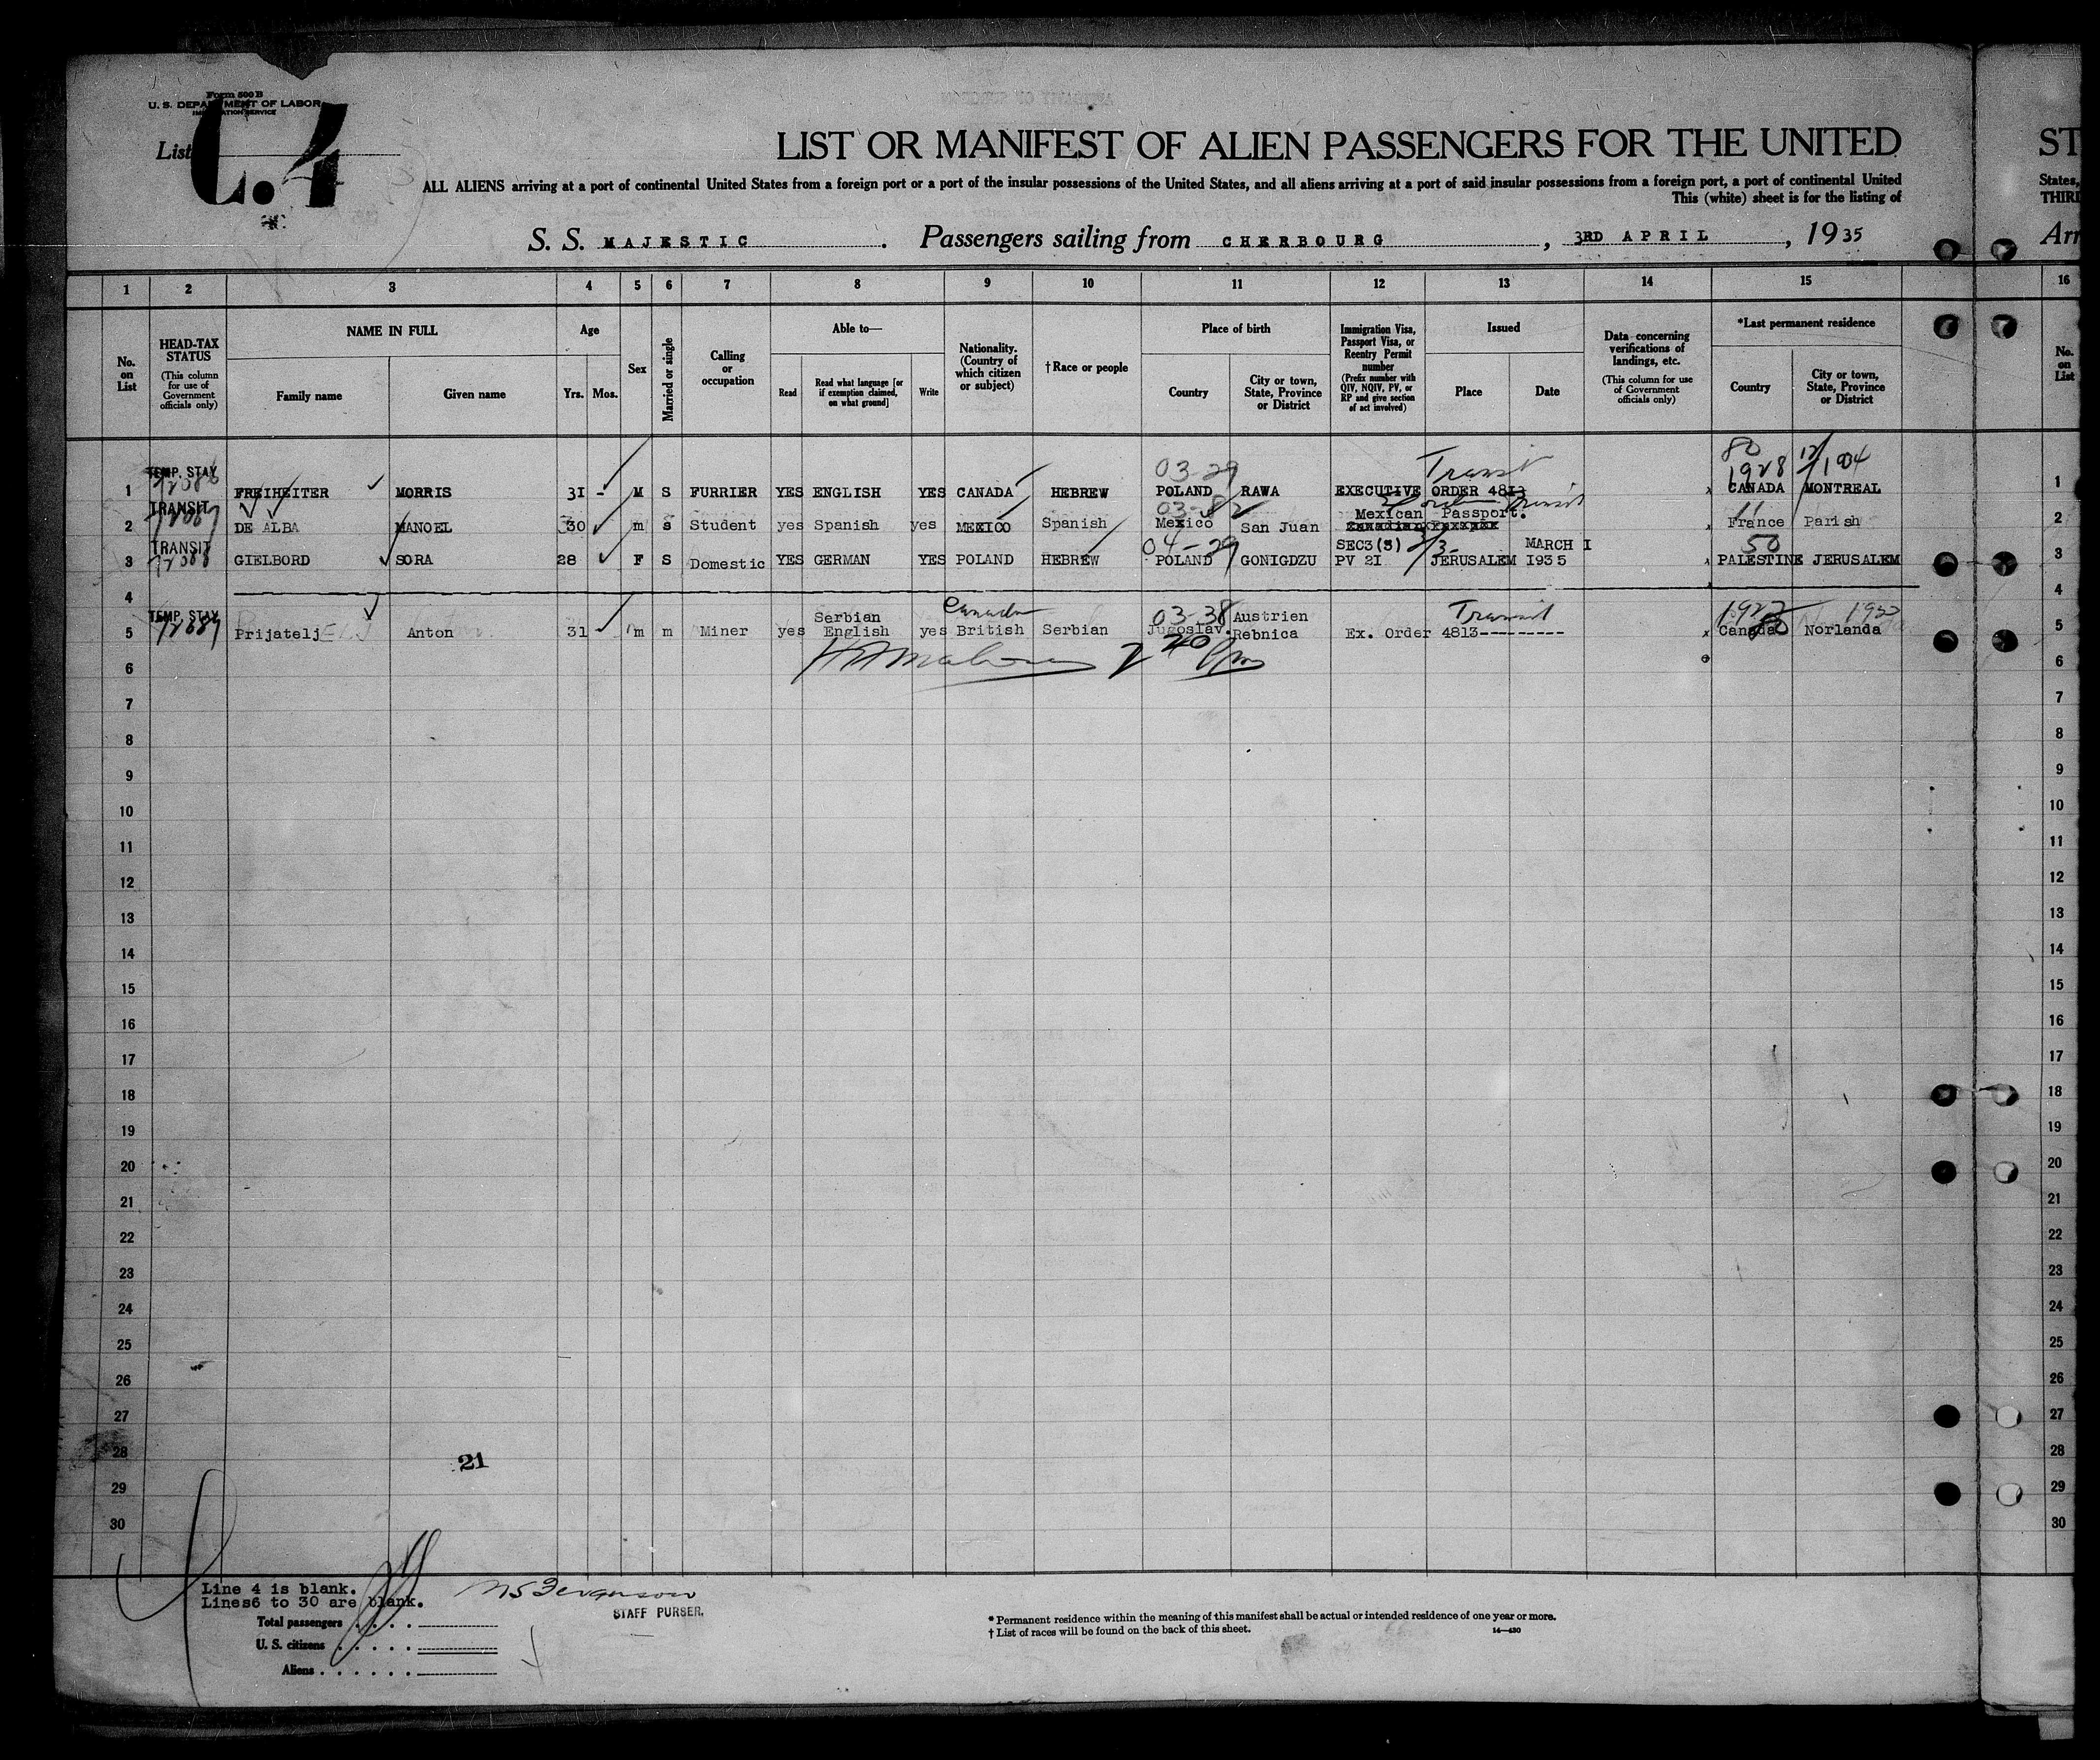 Form 500 B
U. S. DEPARTMENT OF LABOR
IMMIGRATION SERVICE
List C.4
LIST OR MANIFEST OF ALIEN PASSENGERS FOR THE UNITED ST
ALL ALIENS arriving at a port of continental United States from a foreign port or a port of the insular possessions of the United States, and all aliens arriving at a port of said insular possessions from a foreign port, a port of continental United States,
This (white) sheet is for the listing of THIRD
S. S. MAJESTIC. Passengers sailing from CHERBOURG, 3RD APRIL, 1935 Arr
1 2 3 4 5 6 7 8 9 10 11 12 13 14 15 16
No. on List
HEAD-TAX STATUS (This column for use of Government officials only)
NAME IN FULL
Family name Given name
Age
Yrs. Mos.
Sex
Married or single
Calling or occupation
Able to—
Read Read what language [or if exemption claimed, on what ground] Write
Nationality. (Country of which citizen or subject)
†Race or people
Place of birth
Country City or town, State, Province or District
Immigration Visa, Passport Visa, or Reentry Permit number (Prefix number with QIV, NQIV, PV, or RP and give section of act involved)
Issued
Place Date
Data concerning verifications of landings, etc. (This column for use of Government officials only)
*Last permanent residence
Country City or town, State, Province or District
No. on List
TEMP. STAY 03-29 Transit 80 1928
1 FREIHEITER MORRIS 31 - M S FURRIER YES ENGLISH YES CANADA HEBREW POLAND RAWA EXECUTIVE ORDER 4813 CANADA MONTREAL 1
TRANSIT Mexican Passport. Transit
2 DE ALBA MANOEL 30 m s Student yes Spanish yes MEXICO Spanish Mexico San Juan France Parish 2
TRANSIT 04-29 SEC3(3) MARCH I 50
3 GIELBORD SORA 28 F S Domestic YES GERMAN YES POLAND HEBREW POLAND GONIGDZU PV 21 JERUSALEM 1935 PALESTINE JERUSALEM 3
4 4
TEMP. STAY Serbian Canada 03-38 Austrien Transit
5 Prijatelj Anton 31 m m Miner yes English yes British Serbian Jugoslav. Rebnica Ex. Order 4813--------- Canada Norlanda 5
6 6
7 7
8 8
9 9
10 10
11 11
12 12
13 13
14 14
15 15
16 16
17 17
18 18
19 19
20 20
21 21
22 22
23 23
24 24
25 25
26 26
27 27
28 28
21
29 29
30 30
Line 4 is blank.
Lines6 to 30 are blank.
Total passengers
U. S. citizens
Aliens
STAFF PURSER.
* Permanent residence within the meaning of this manifest shall be actual or intended residence of one year or more.
† List of races will be found on the back of this sheet.
14—430